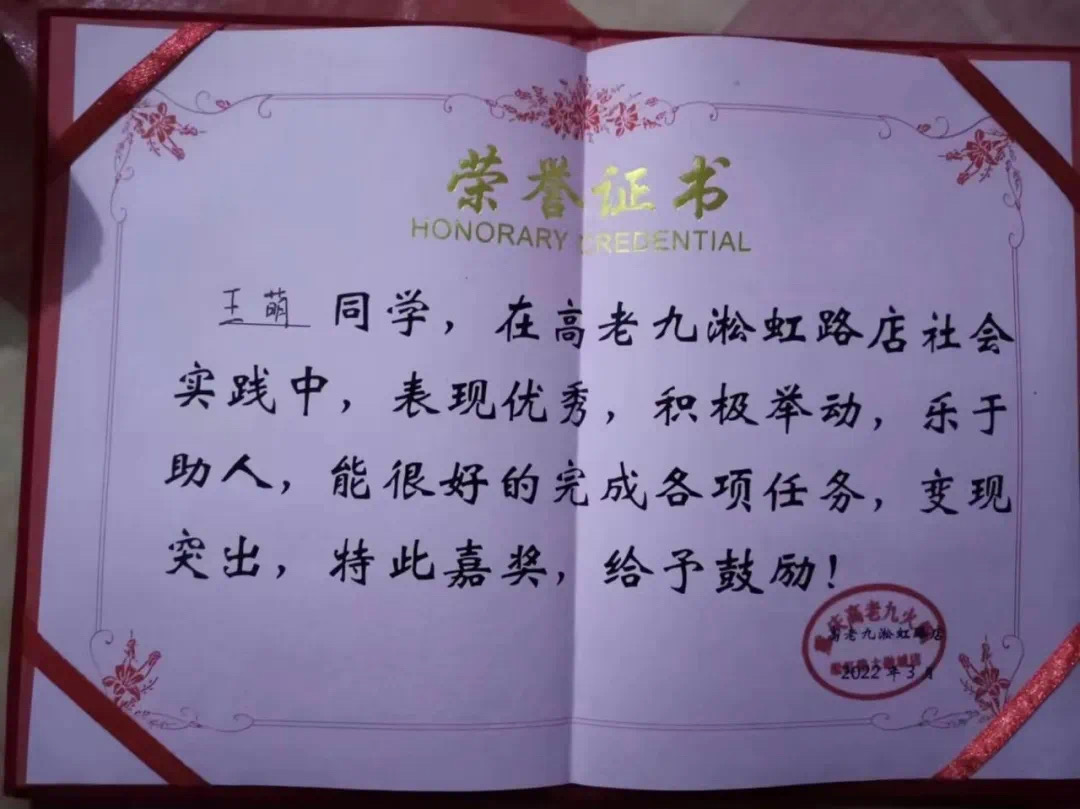 荣誉证书
HONORARY CREDENTIAL
王萌 同学，在高老九淞虹路店社会
实践中，表现优秀，积极举动，乐于
助人，能很好的完成各项任务，变现
突出，特此嘉奖，给予鼓励！
高老九淞虹路店
2022年3月